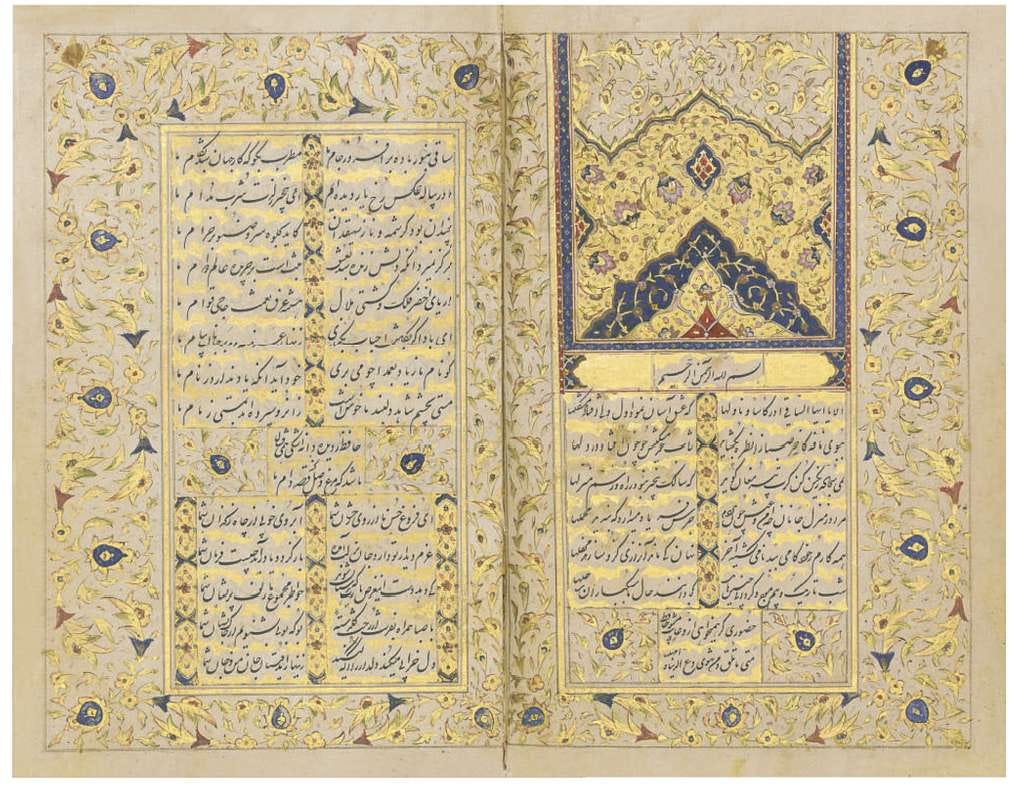 بسم الله الرحمن الرحیم
الا یا ایها الساقی ادر کاسا و ناولها که عشق آسان نمود اول ولی افتاد مشکلها
ببوی نافه کاخر صبا زان طره بگشاید ز تاب جعد مشکینش چه خون افتاد در دلها
بمی سجاده رنگین کن گرت پیر مغان گوید که سالک بیخبر نبود ز راه و رسم منزلها
مرا در منزل جانان چه امن عیش چون هر دم جرس فریاد میدارد که بربندید محملها
همه کارم ز خودکامی به بدنامی کشید آخر نهان کی ماند آن رازی کزو سازند محفلها
شب تاریک و بیم موج و گردابی چنین هایل کجا دانند حال ما سبکباران ساحلها
حضوری گر همیخواهی ازو غایب مشو حافظ
متی ما تلق من تهوی دع الدنیا و اهملها
ساقی بنور باده برافروز جام ما مطرب بگو که کار جهان شد بکام ما
ما در پیاله عکس رخ یار دیده ایم ای بیخبر ز لذت شرب مدام ما
چندان بود کرشمه و ناز سهی قدان کاید بجلوه سرو صنوبر خرام ما
هرگز نمیرد آنکه دلش زنده شد بعشق ثبت است بر جریده عالم دوام ما
دریای اخضر فلک و کشتی هلال هستند غرق نعمت حاجی قوام ما
ای باد اگر بگلشن احباب بگذری زنهار عرضه ده بر جانان پیام ما
گو نام ما ز یاد بعمدا چه میبری خود آید آنکه یاد نیاری ز نام ما
مستی بچشم شاهد دلبند ما خوشست زانرو سپرده اند بمستی زمام ما
حافظ ز دیده دانه اشکی همی فشان
باشد که مرغ وصل کند قصد دام ما
ای فروغ حسن ماه از روی رخشان شما آب روی خوبی از چاه زنخدان شما
عزم دیدار تو دارد جان بر لب آمده بازگردد یا درآید چیست فرمان شما
کی دهد دست این غرض یا رب که همدستان شوند خاطر مجموع ما زلف پریشان شما
با صبا همراه بفرست از رخت گلدسته بو که بوئی بشنویم از خاک بستان شما
دل خرابی میکند دلدار را آگه کنید زینهار ای دوستان جان من و جان شما